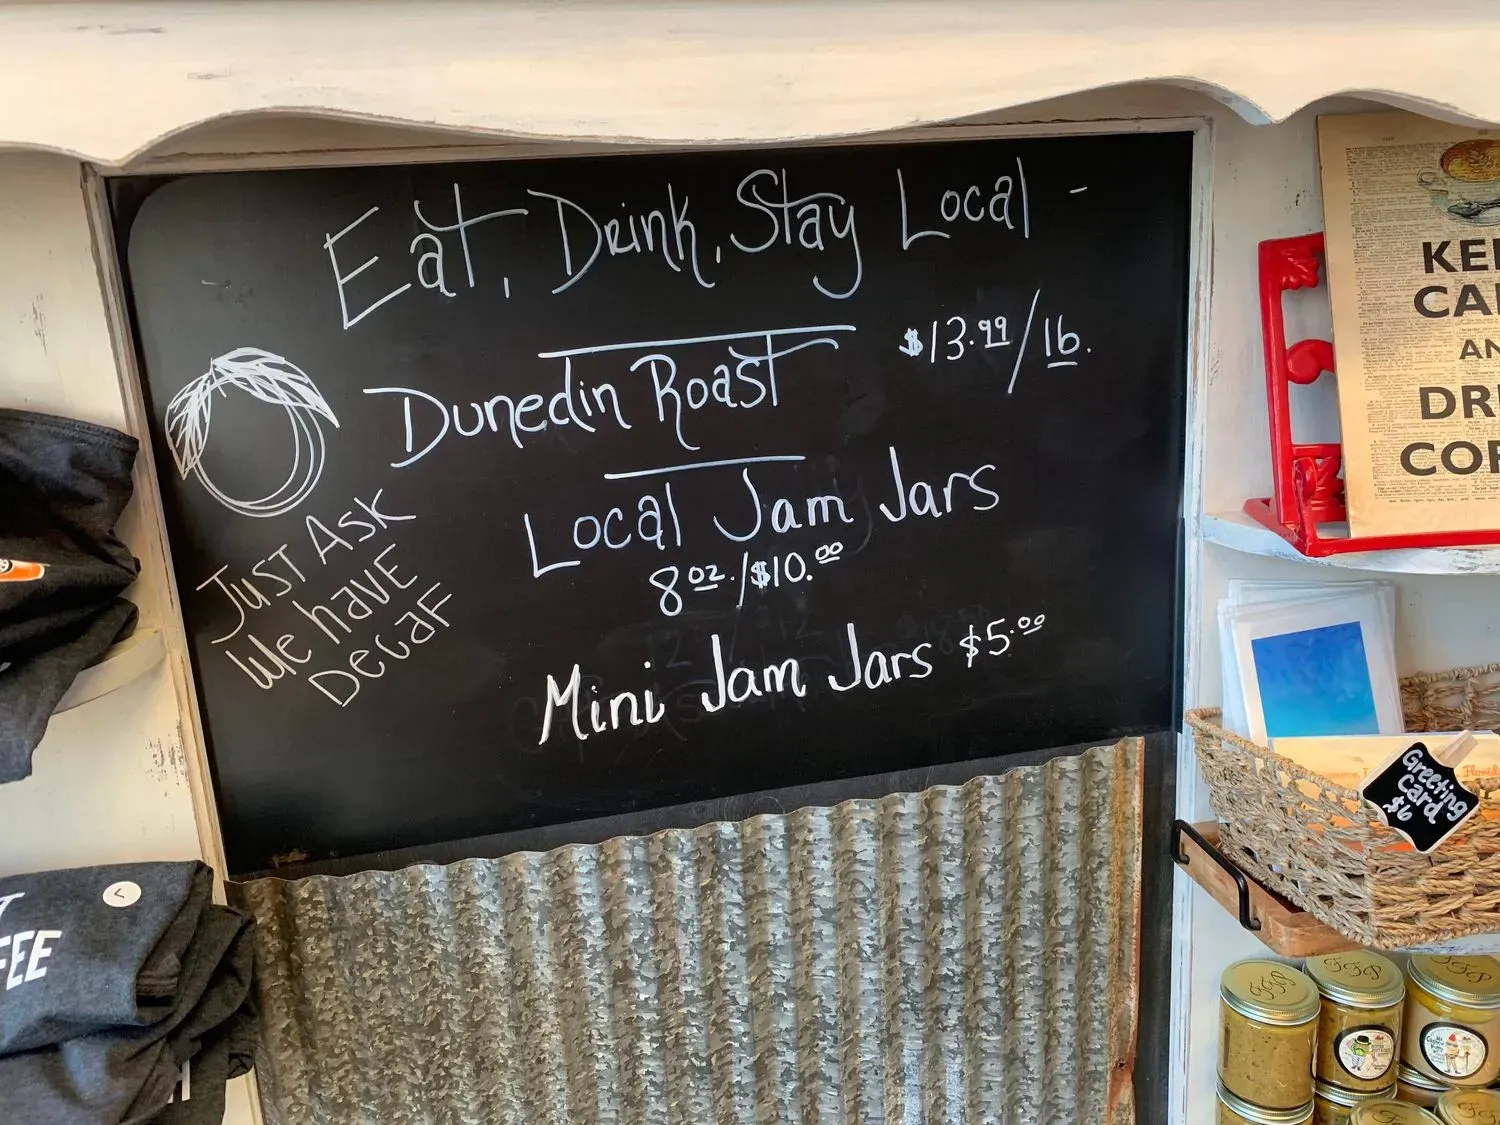 Eat, Drink, Stay Local -
Dunedin Roast $13.99/lb.
Local Jam Jars
8 oz./$10.00
Mini Jam Jars $5.00
Just Ask
We have
Decaf
KE
CA
AN
DR
CO
Greeting
Card
$6
L
FEE
FFP
FFP
FFP